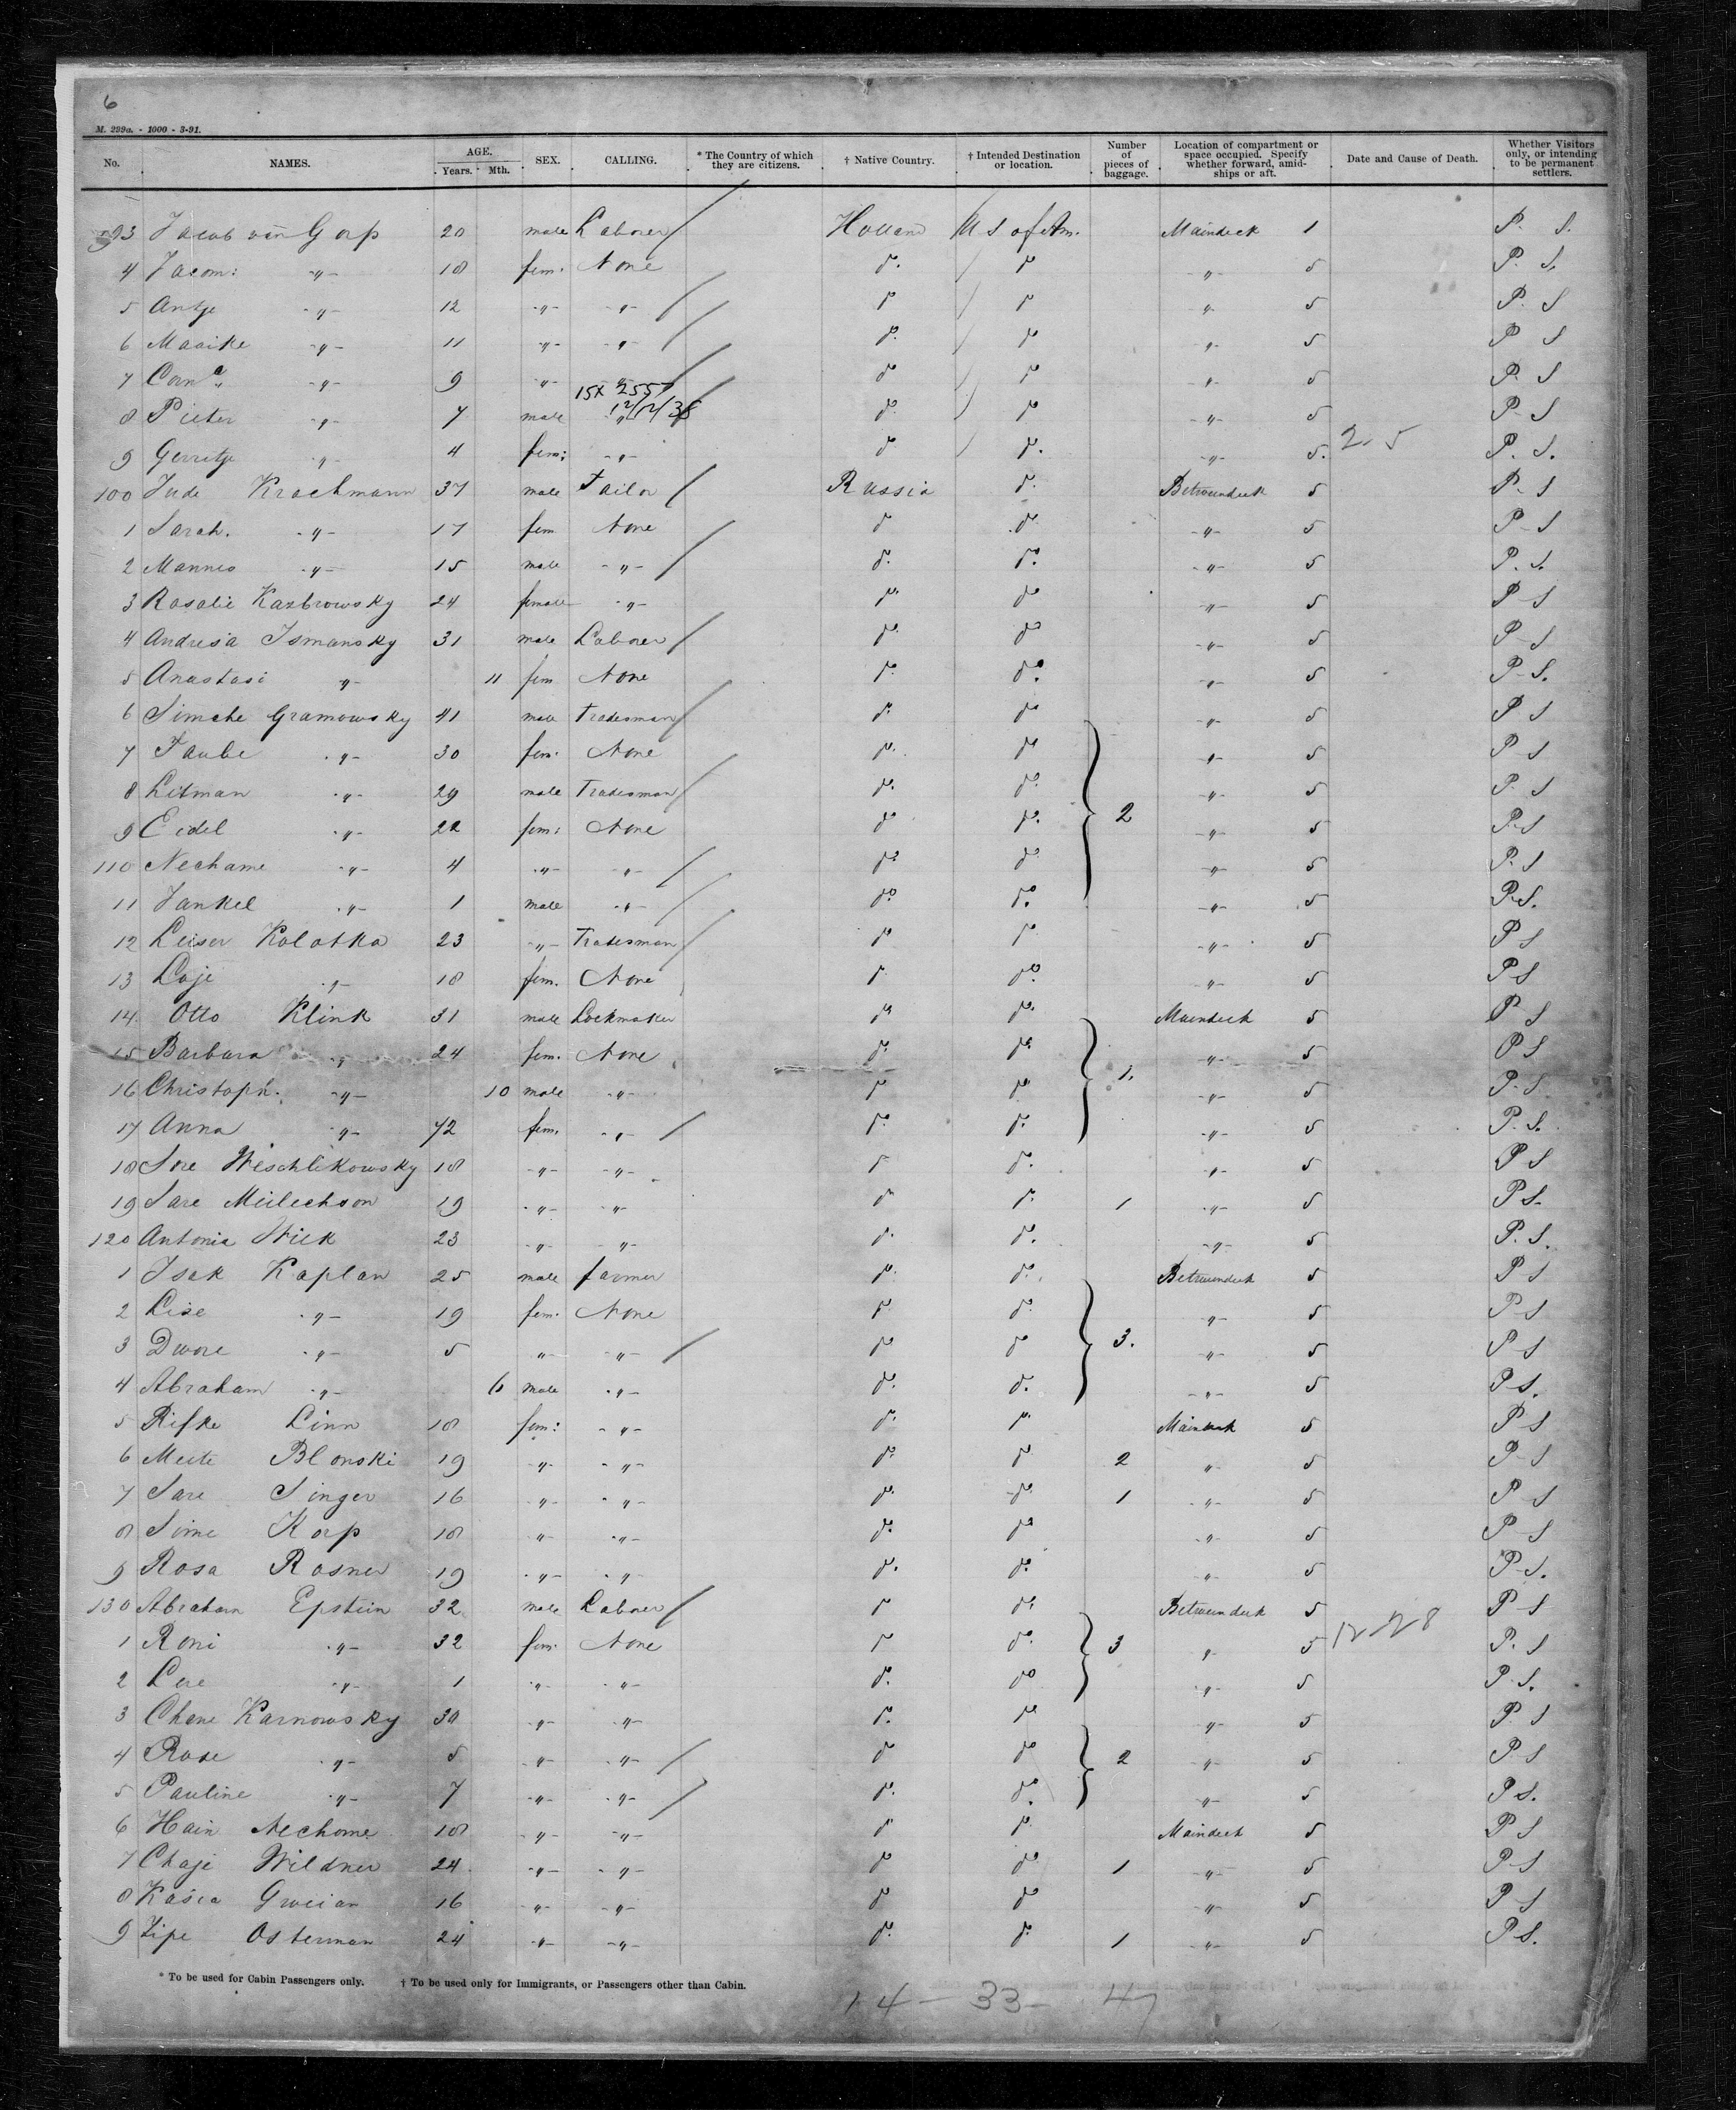 6
M. 299a. - 1000 - 3-91.
No. NAMES. AGE. Years. Mth. SEX. CALLING. * The Country of which they are citizens. † Native Country. † Intended Destination or location. Number of pieces of baggage. Location of compartment or space occupied. Specify whether forward, amidships or aft. Date and Cause of Death. Whether Visitors only, or intending to be permanent settlers.
93 Jacob van Gorp 20 male Laborer Holland U S of Am. Maindeck 1 P. S.
4 Jacom: -"- 18 fem: None do. do -"- 5 P. S.
5 Antje -"- 12 -"- -"- do do -"- 5 P. S
6 Maaike -"- 11 -"- -"- do. do -"- 5 P S
7 Corn.a -"- 9 -"- -"- do do -"- 5 P. S
15x 2557
12/12/38
8 Pieter -"- 7 male -"- do. do -"- 5 P-S
9 Gerritje -"- 4 fem: -"- do do. -"- 5. 2-5 P. S.
100 Jude Krachmann 37 male Tailor Russia do. Betweendeck 5 P-S
1 Sarah. -"- 17 fem None do do. -"- 5 P-S
2 Mannes -"- 15 male -"- do. do. -"- 5 P. S.
3 Rosalie Kazbrowsky 24 female -"- do. do -"- 5 P S
4 Andresa Ismansky 31 male Laborer do. do -"- 5 P-S
5 Anastasi -"- 11 fem None do. do. -"- 5 P-S.
6 Simche Gramowsky 41 male Tradesman do. do -"- 5 P S
7 Taube -"- 30 fem. None do. do -"- 5 P S
8 Litman -"- 29 male Tradesman do. do. -"- 5 P. S
9 Eidel -"- 22 fem: None do do. 2 -"- 5 P.S
110 Nechame -"- 4 -"- -"- do. do -"- 5 P. S
11 Jankel -"- 1 male -"- do. do. -"- 5 P.S.
12 Leiser Kolatka 23 -"- Tradesman do do -"- 5 P S
13 Loje -"- 18 fem. None do do. -"- 5 P S
14. Otto Klink 31 male Lockmaker do do. Maindeck 5 P S
15 Barbara -"- 24 fem. None do. do. -"- 5 P S
16 Christoph. -"- 10 male -"- do do. 1. -"- 5 P. S
17 Anna -"- 72 fem. -"- do. do. -"- 5 P. S.
18 Sore Weschlikowsky 18 -"- -"- do do. -"- 5 P S
19 Sare Meilechson 19 -"- -"- do do. 1 -"- 5 P S.
120 Antonia Wilk 23 -"- -"- do. do. -"- 5 P. S.
1 Isak Kaplan 25 male farmer do. do. Betweendeck 5 P S
2 Lise -"- 19 fem. None do do. -"- 5 P S
3 Dwore -"- 5 -"- -"- do do 3. -"- 5 P S
4 Abraham -"- 6 male -"- do. do. -"- 5 P S.
5 Rifke Linn 18 fem: -"- do. do. Maindeck 5 P S
6 Meite Blonski 19 -"- -"- do. do. 2 -"- 5 P-S
7 Sare Singer 16 -"- -"- do. do. 1 -"- 5 P S
8 Sime Korp 18 -"- -"- do. do -"- 5 P S
9 Rosa Rosner 19 -"- -"- do. do. -"- 5 P-S.
130 Abraham Epstein 32 male Laborer do do. Betweendeck 5 P S
1 Roni -"- 32 fem. None do do. 3 -"- 5 P. S
2 Lere -"- 1 -"- -"- do. do -"- 5 P. S.
3 Chane Karnowsky 30 -"- -"- do. do -"- 5 P S
4 Rose -"- 5 -"- -"- do do 2 -"- 5 P S
5 Pauline -"- 7 -"- -"- do. do. -"- 5 P S.
6 Hain Nechome 18 -"- -"- do do. Maindeck 5 P S
7 Chaje Wildner 24 -"- -"- do do 1 -"- 5 P-S
8 Kasia 16 -"- -"- do do -"- 5 P S
9 Zipe Osterman 24 -"- -"- do. do. 1 -"- 5 P S.
* To be used for Cabin Passengers only. † To be used only for Immigrants, or Passengers other than Cabin.
14 - 33 - 47